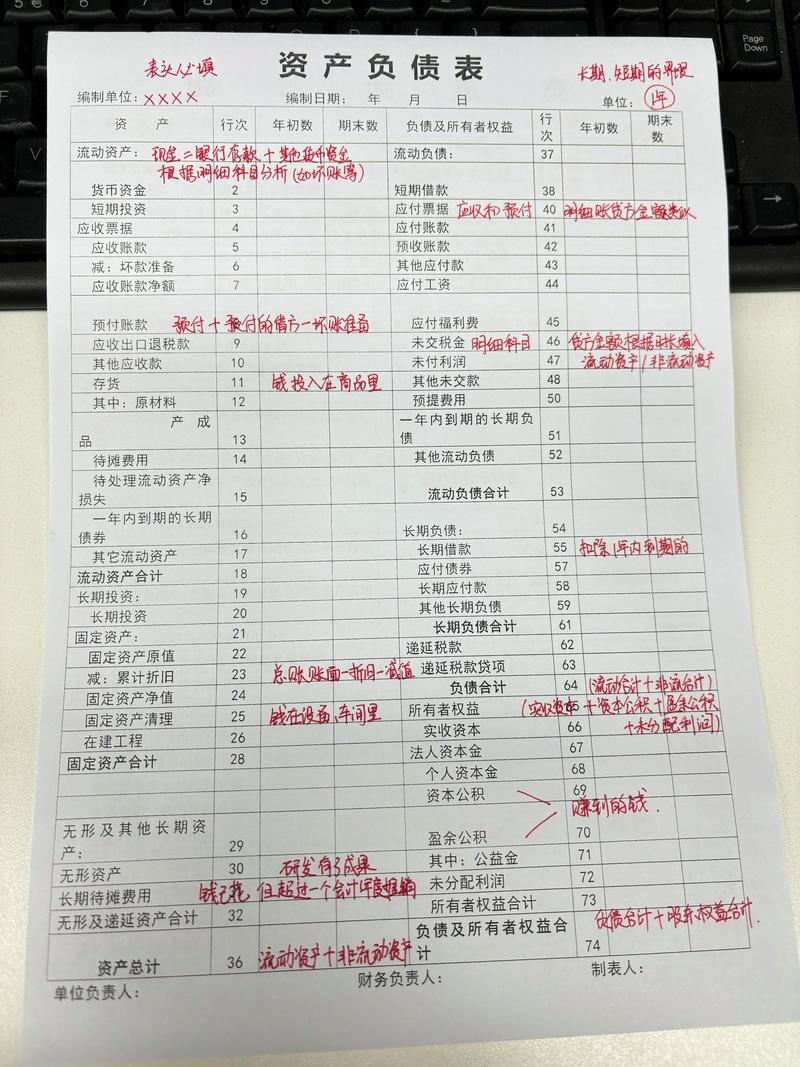 资产负债表
表头必填
长期、短期的界限
编制单位：XXXX 编制日期： 年 月 日 单位： 1年
资 产 行次 年初数 期末数 负债及所有者权益 行次 年初数 期末数
流动资产： 现金＝银行存款＋其他货币资金 流动负债： 37
根据明细科目分析（如坏账等）
货币资金 2 短期借款 38
短期投资 3 应付票据 应收和预付 40 明细账贷方金额
应收票据 4 应付账款 41
应收账款 5 预收账款 42
减：坏款准备 6 其他应付款 43
应收账款净额 7 应付工资 44
预付账款 预付＋预付的借方－坏账准备 应付福利费 45
应收出口退税款 9 未交税金 明细科目 46 贷方金额根据时长填入
其他应收款 10 未付利润 47 流动资产/非流动资产
存货 11 钱投入在商品里 其他未交款 48
其中：原材料 12 预提费用 50
产成品 13 一年内到期的长期负债 51
待摊费用 14 其他流动负债 52
待处理流动资产净损失 15 流动负债合计 53
一年内到期的长期债券 16 长期负债： 54
其它流动资产 17 长期借款 55 扣除1年内到期的
流动资产合计 18 应付债券 57
长期投资： 19 长期应付款 58
长期投资 20 其他长期负债 59
固定资产： 21 长期负债合计 61
固定资产原值 22 递延税款 62
减：累计折旧 23 总账账面－折旧－减值 递延税款贷项 63
固定资产净值 24 负债合计 64 (流动合计＋非流合计)
固定资产清理 25 钱在设备、车间里 所有者权益 65 (实收资本＋资本公积＋盈余公积
在建工程 26 实收资本 66 ＋未分配利润)
固定资产合计 28 法人资本金 67
个人资本金 68
资本公积 69
赚到的钱.
无形及其他长期资产： 29 盈余公积 70
无形资产 30 研发有了成果 其中：公益金 71
长期待摊费用 钱已花 但超过一个会计年度摊销 未分配利润 72
无形及递延资产合计 32 所有者权益合计 73
资产总计 36 流动资产＋非流动资产 负债及所有者权益合计 74 负债合计＋股东权益合计.
单位负责人： 财务负责人： 制表人：